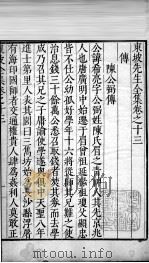 東坡先生全集卷之十三
傳
陳公弼傳
公諱希亮字公弼姓陳氏眉之青神人其先京兆
人也唐廣明中始遷于眉曾祖延祿祖瓊父顯忠
皆不仕公幼孤好學年十六將從師其兄難之使
治息錢三十餘萬公悉召取錢者焚其券而去學
成乃召其兄之子庸諭使學遂與俱中天聖八年
進士第里人表其閭曰三俊坊始為長沙縣浮屠
有海印國師者交通權貴人肆為姦利人莫敢